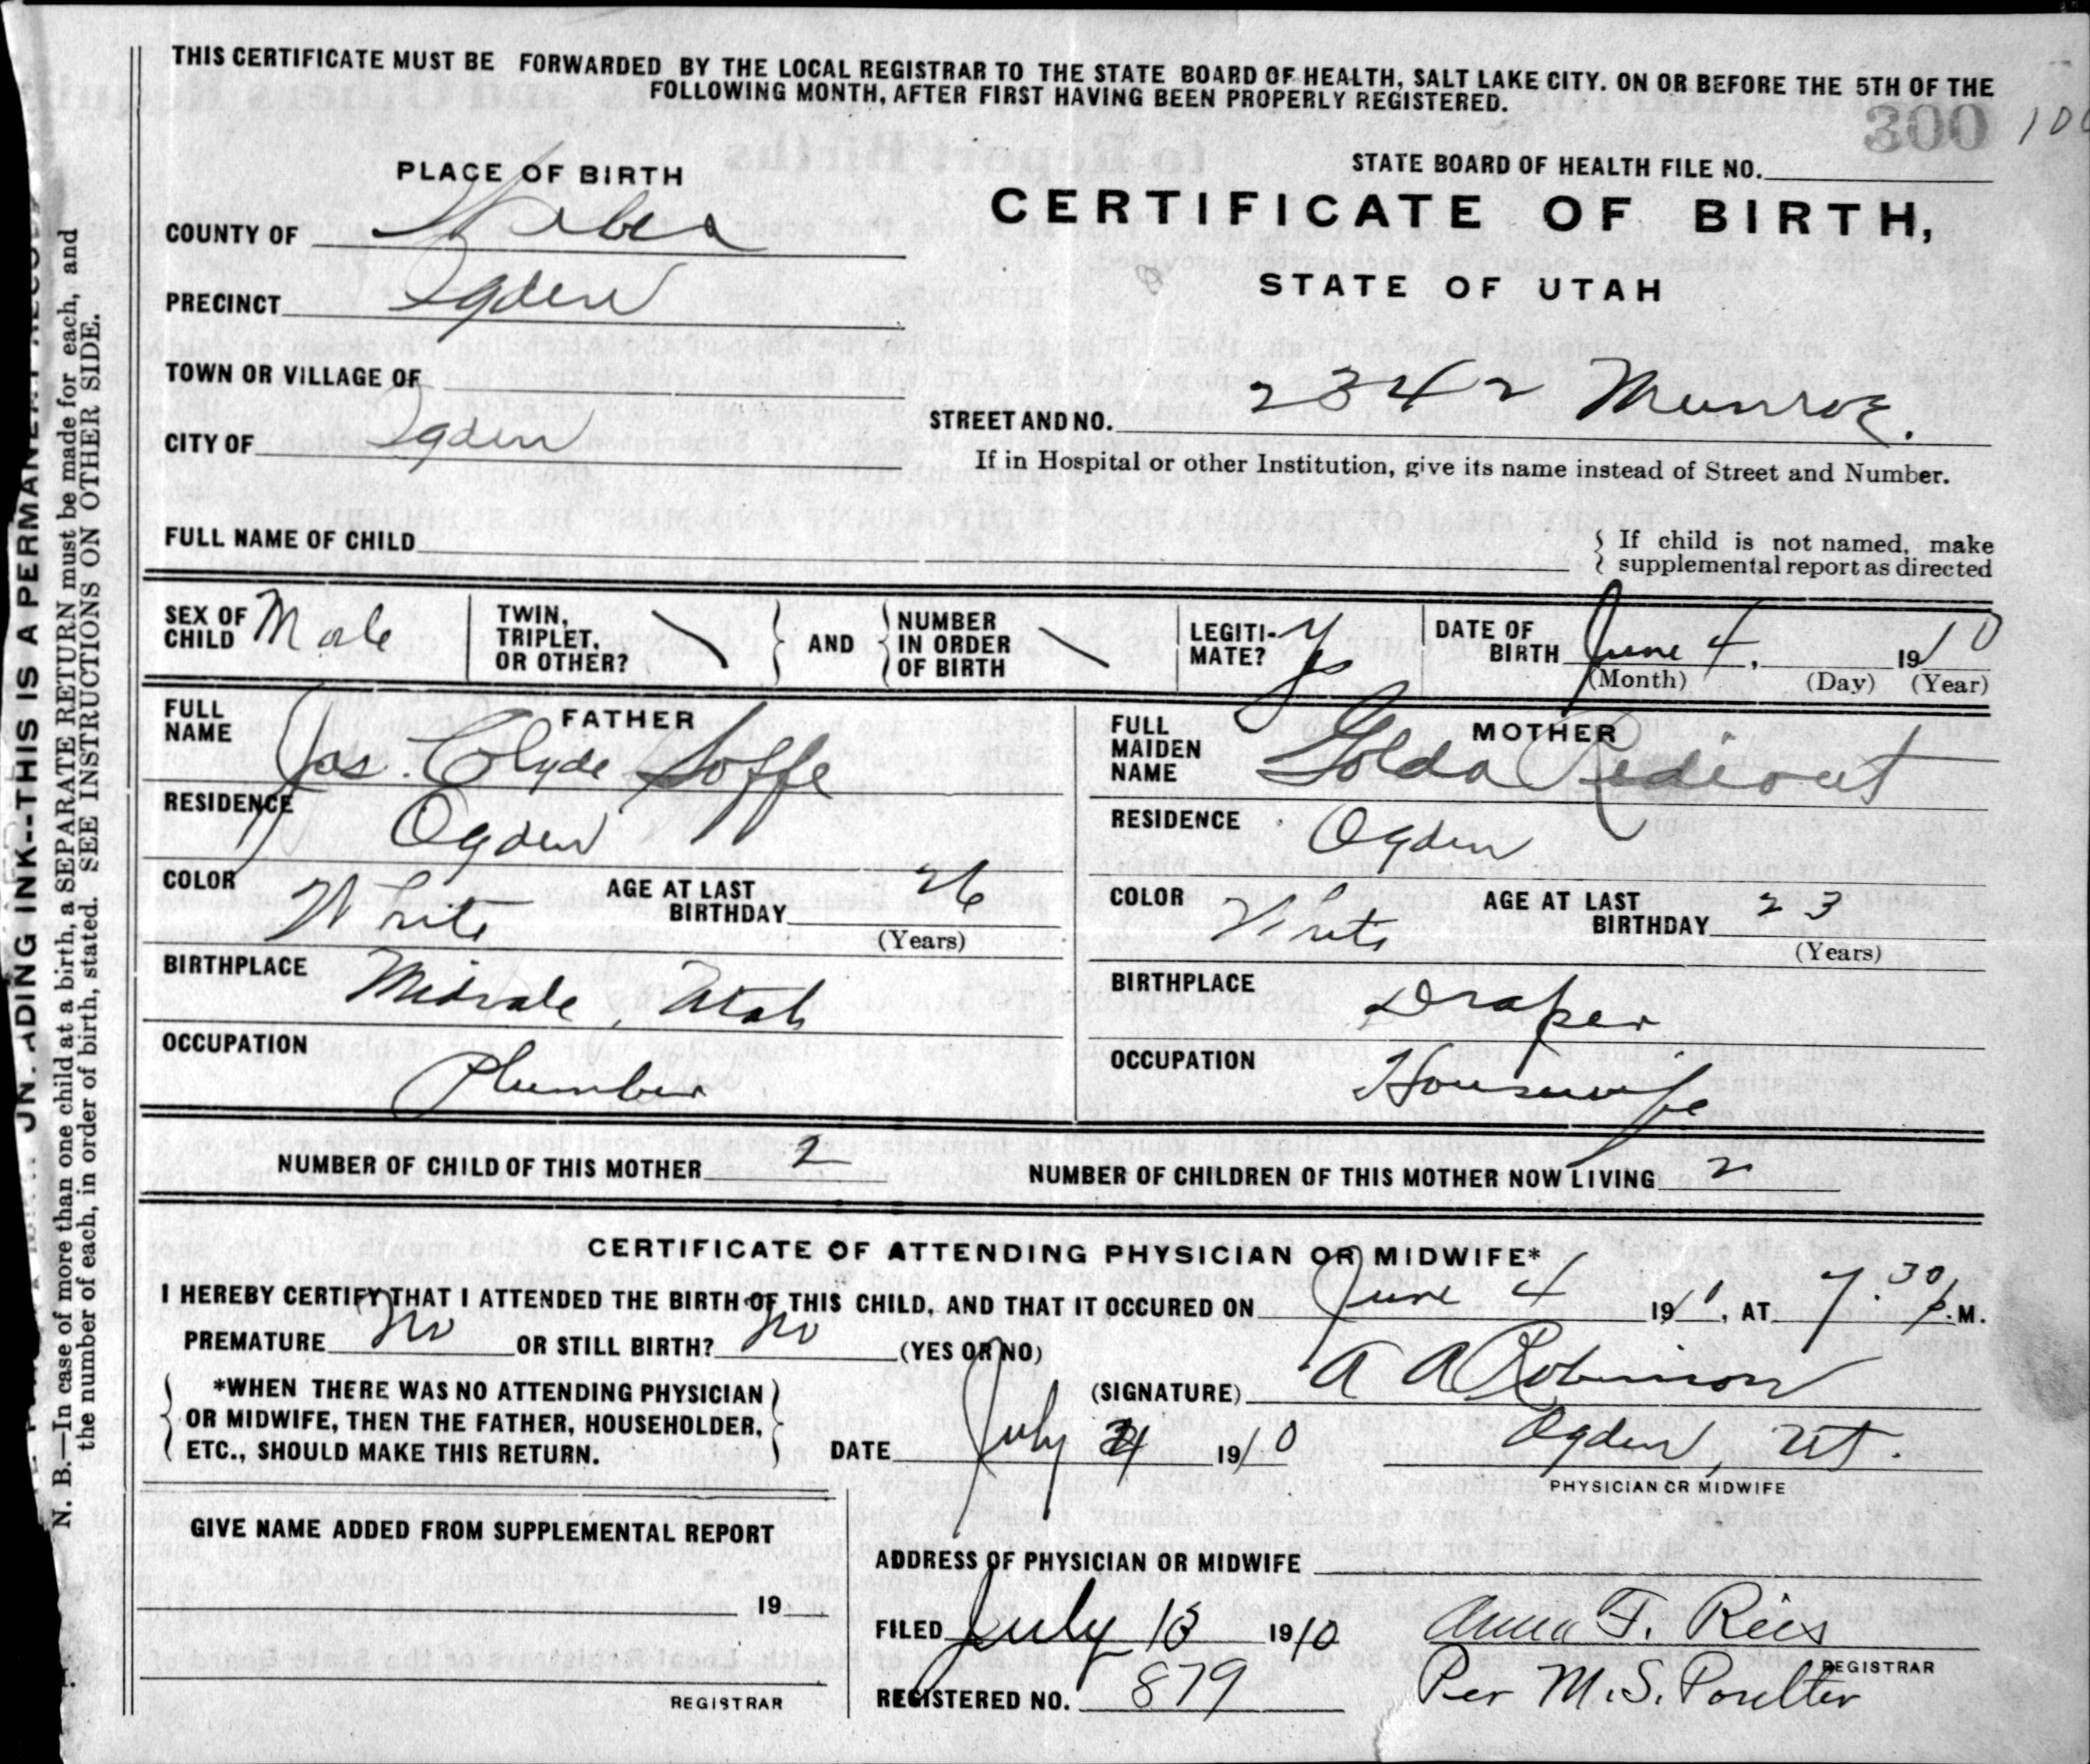 THIS CERTIFICATE MUST BE FORWARDED BY THE LOCAL REGISTRAR TO THE STATE BOARD OF HEALTH, SALT LAKE CITY. ON OR BEFORE THE 5TH OF THE
FOLLOWING MONTH, AFTER FIRST HAVING BEEN PROPERLY REGISTERED.
300
100
PLACE OF BIRTH
STATE BOARD OF HEALTH FILE NO.
CERTIFICATE OF BIRTH,
STATE OF UTAH
COUNTY OF Weber
PRECINCT Ogden
TOWN OR VILLAGE OF
CITY OF Ogden
STREET AND NO. 2342 Munroe.
If in Hospital or other Institution, give its name instead of Street and Number.
FULL NAME OF CHILD
If child is not named, make
supplemental report as directed
SEX OF CHILD Male
TWIN, TRIPLET, OR OTHER? \ AND NUMBER IN ORDER OF BIRTH \
LEGITIMATE? Yes
DATE OF BIRTH June 4, 1910
(Month) (Day) (Year)
FATHER
FULL NAME Jas. Clyde Soffe
RESIDENCE Ogden
COLOR White AGE AT LAST BIRTHDAY 26
(Years)
BIRTHPLACE Midvale, Utah
OCCUPATION Plumber
MOTHER
FULL MAIDEN NAME Golda Rideout
RESIDENCE Ogden
COLOR White AGE AT LAST BIRTHDAY 23
(Years)
BIRTHPLACE Draper
OCCUPATION Housewife
NUMBER OF CHILD OF THIS MOTHER 2
NUMBER OF CHILDREN OF THIS MOTHER NOW LIVING 2
CERTIFICATE OF ATTENDING PHYSICIAN OR MIDWIFE*
I HEREBY CERTIFY THAT I ATTENDED THE BIRTH OF THIS CHILD, AND THAT IT OCCURED ON June 4 191, AT 7.30 P.M.
PREMATURE No OR STILL BIRTH? No (YES OR NO)
*WHEN THERE WAS NO ATTENDING PHYSICIAN
OR MIDWIFE, THEN THE FATHER, HOUSEHOLDER,
ETC., SHOULD MAKE THIS RETURN.
(SIGNATURE) A A Robinson
DATE July 4 1910
Ogden, Ut.
PHYSICIAN OR MIDWIFE
GIVE NAME ADDED FROM SUPPLEMENTAL REPORT
19
REGISTRAR
ADDRESS OF PHYSICIAN OR MIDWIFE
FILED July 13 1910
Anna F. Rees
REGISTRAR
REGISTERED NO. 879
Per M.S. Poulter
ADING INK--THIS IS A PERMANENT RECORD
N. B.—In case of more than one child at a birth, a SEPARATE RETURN must be made for each, and
the number of each, in order of birth, stated. SEE INSTRUCTIONS ON OTHER SIDE.